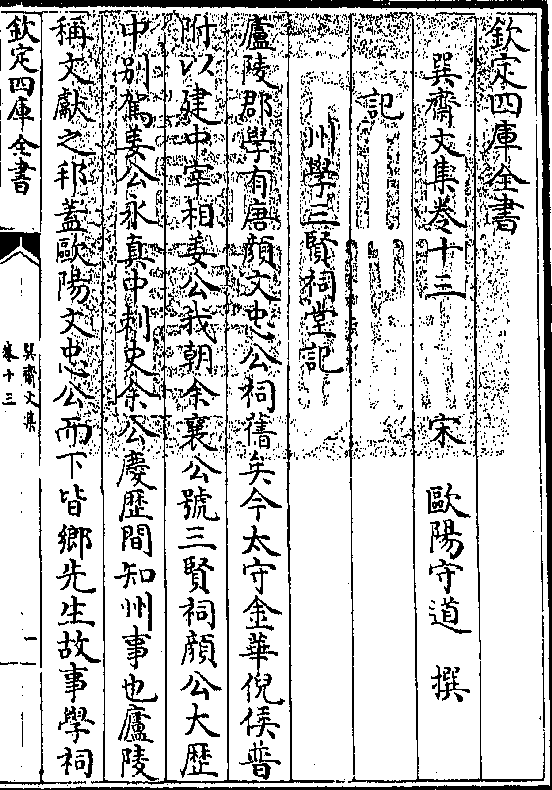 欽定四庫全書
巽齋文集卷十三 宋 歐陽守道 撰
記
州學三賢祠堂記
廬陵郡學有唐顔文忠公祠舊矣今太守金華倪侯普
附以建中宰相姜公我朝余襄公號三賢祠顔公大歴
中别駕姜公永貞中刺史余公慶歴間知州事也廬陵
稱文獻之邦蓋歐陽文忠公而下皆鄉先生故事學祠
欽定四庫全書
巽齋文集
卷十三
一